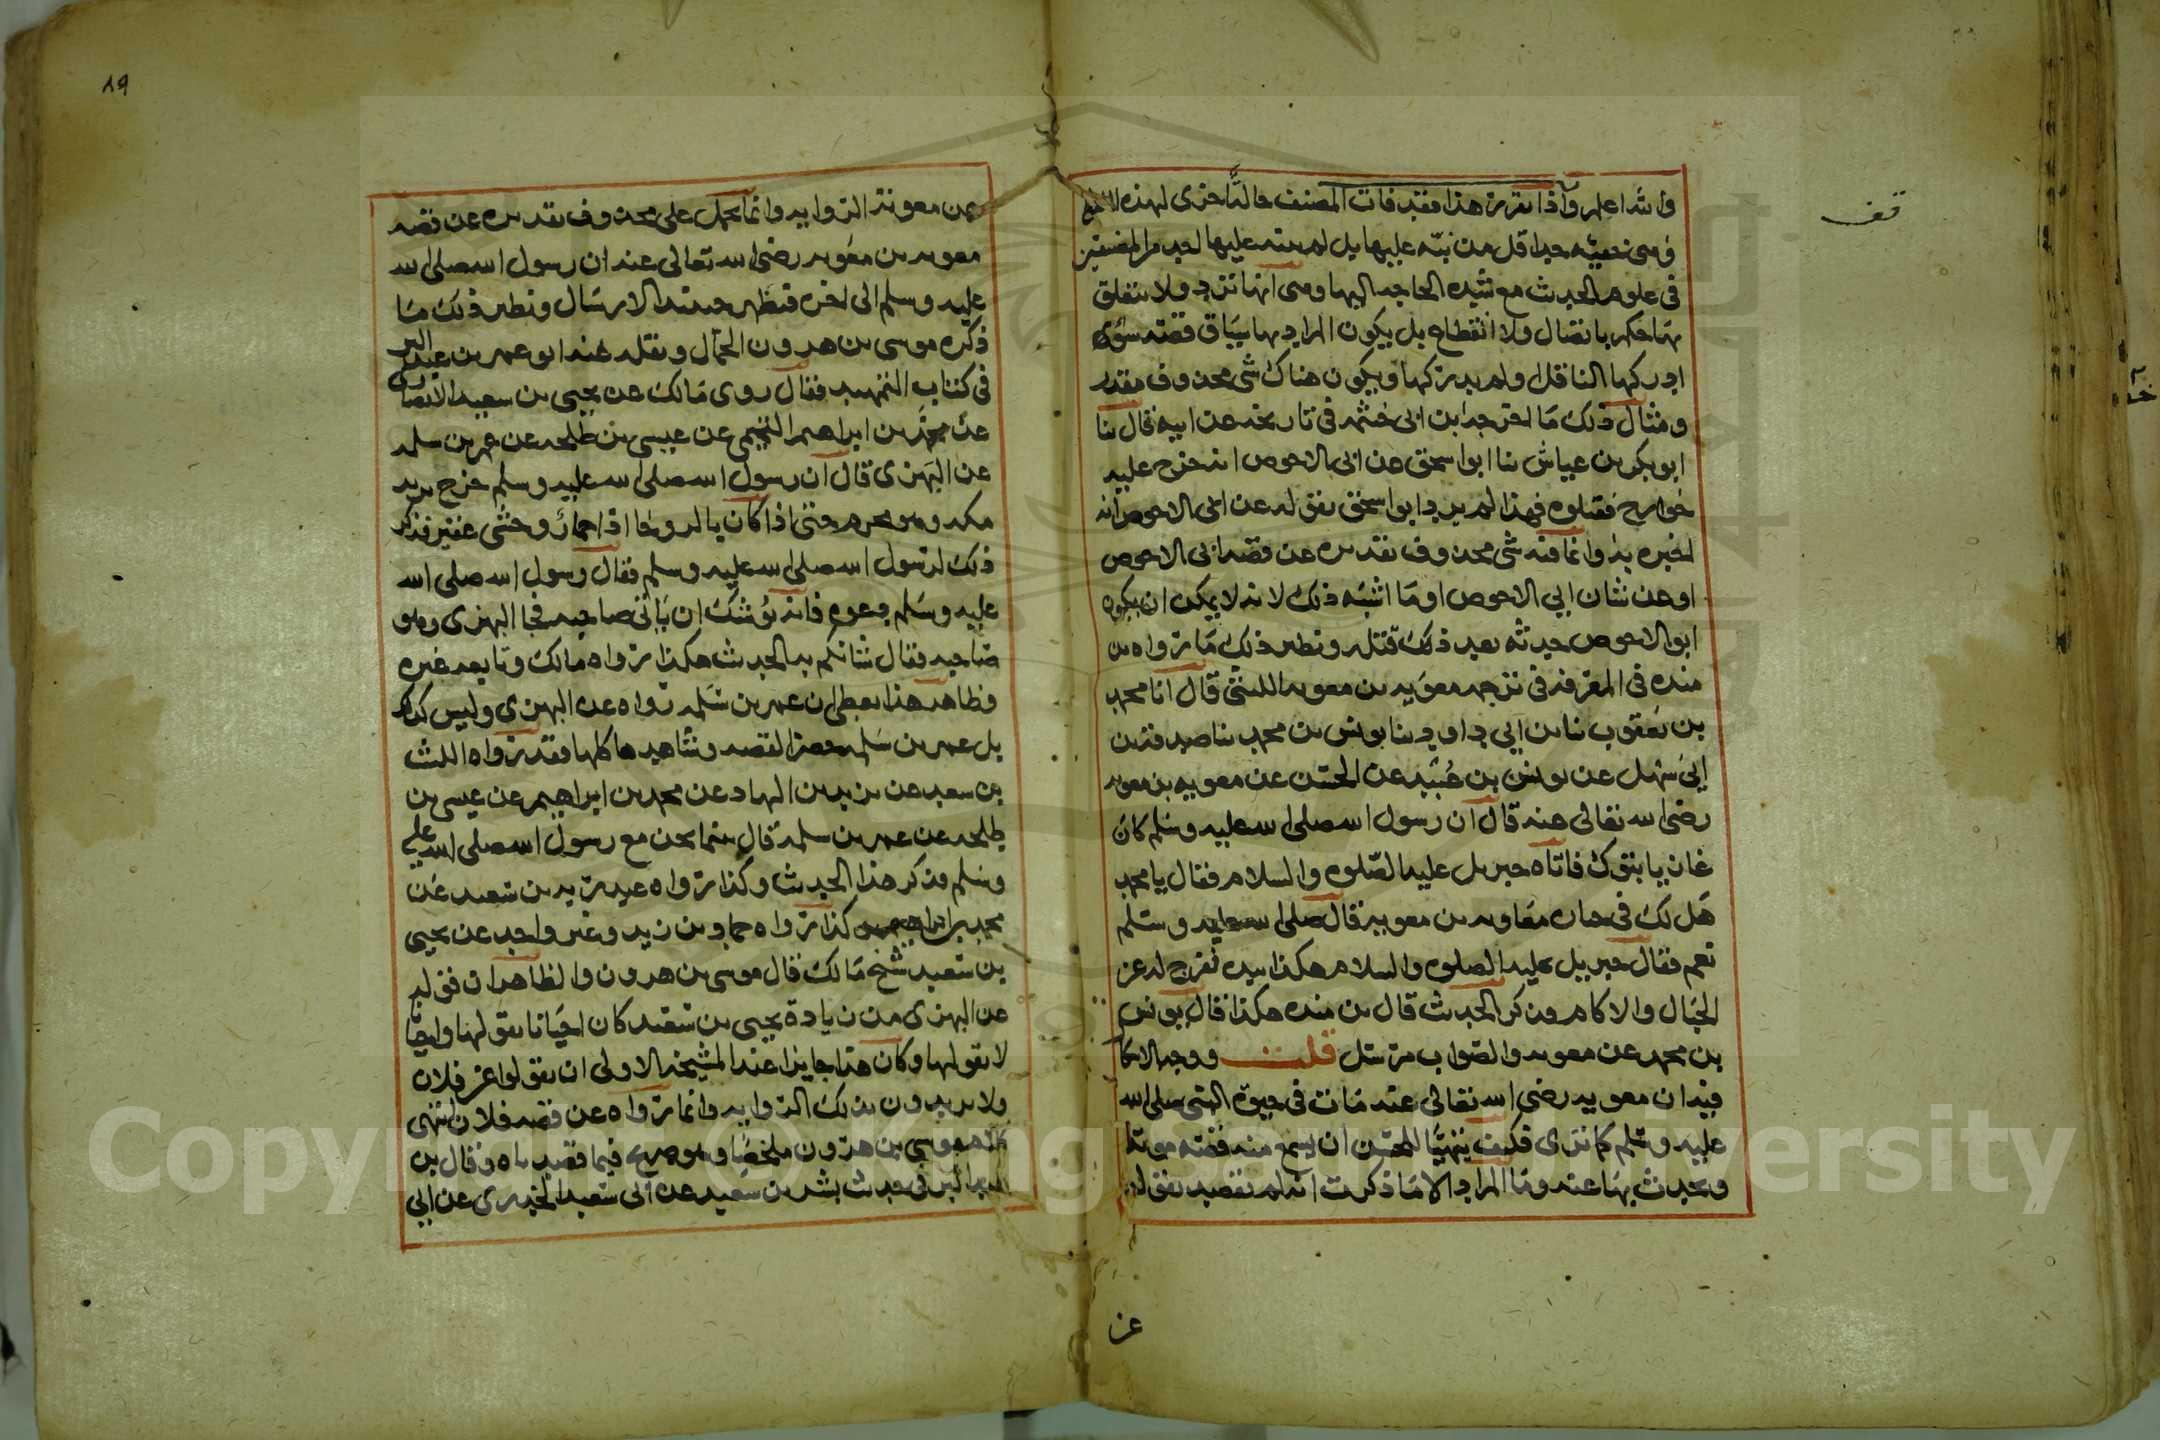 قف
والله اعلم واذا تقرر هذا فقد فات المصنف حالة اخرى لهذه اللفظة
وهى خفيه جدا قل من نبه عليها بل لم ينبه عليها احد من المصنفين
فى علوم الحديث مع شده الحاجه اليها وهى انها ترد ولا يتعلق
بها حكم باتصال ولا انقطاع بل يكون المراد بها سياق قصته سوى
ادركها الناقل او لم يدركها ويكون هناك شى محذوف مقدر
ومثال ذلك ما اخرجه ابن ابى خيثمه فى تاريخه عن ابيه قال ثنا
ابو بكر بن عياش ثنا ابو اسحق عن ابى الاحوص انه خرج عليه
خوارج فقتلوه فهذا لم يرد ابو اسحق بقوله عن ابى الاحوص انه
اخبره به وانما فيه شى محذوف تقديره عن قصه ابى الاحوص
او عن شان ابي الاحوص او ما اشبه ذلك لانه لا يمكن ان يكون
ابو الاحوص حدثه بعد ذلك قتله ونظير ذلك ما رواه بن
منده فى المعرفه فى ترجمه معويه بن معويه الليثى قال انا محمد
بن يعقوب ثنا بن ابي داود ثنا يونس بن محمد ثنا صدقه بن
ابي سهل عن يونس بن عبيد عن الحسن عن معويه بن معويه
رضى الله تعالى عنه قال ان رسول الله صلى الله عليه وسلم كان
غازيا بتبوك فاتاه جبريل عليه الصلوه والسلام فقال يا محمد
هل لك فى جنازه معاويه بن معويه قال صلى الله عليه وسلم
نعم فقال جبريل عليه الصلوه والسلام هكذا بيده ففرج له عن
الجبال والاكام فذكر الحديث قال بن منده هكذا قال يونس
بن محمد عن معويه والصواب مرسل قلت ووجه الاكا
فيه ان معويه رضى الله تعالى عنه مات فى حيوة النبى صلى الله
عليه وسلم كما ترى فكيف يتهيا للحسن ان يسمع منه قصته موتا
ويحدث بها عنه وما المراد الا ما ذكرت انه لم يقصد بقوله
عن
٨٩
عن معوية الروايه وانما يحمل على محذوف تقديره عن قصه
معويه بن معويه رضى الله تعالى عنه ان رسول الله صلى الله
عليه وسلم الى اخره فيظهر حينئذ الارسال ونظير ذلك ما
ذكره موسى بن هرون الحمال ونقله عنه ابو عمر بن عبد البر
فى كتاب التمهيد فقال روى مالك عن يحيى بن سعيد الانصارى
عن محمد بن ابراهيم التيمى عن عيسى بن طلحه عن عمير بن سلمه
عن البهزى قال ان رسول الله صلى الله عليه وسلم خرج يريد
مكه وهو محرم حتى اذا كان بالروحا اذا حمار وحشى عقير فذكر
ذلك لرسول الله صلى الله عليه وسلم فقال رسول الله صلى الله
عليه وسلم دعوه فانه يوشك ان ياتى صاحبه فجا البهزى وهو
صاحبه فقال شانكم به الحديث هكذا رواه مالك وتابعه غيره
وظاهر هذا يعطى ان عمير بن سلمه رواه عن البهزى وليس كذلك
بل عمير بن سلمه حضر القصه وشاهدها كلها فقد رواه الليث
بن سعد عن يزيد بن الهاد عن محمد بن ابراهيم عن عيسى بن
طلحه عن عمير بن سلمه قال بينما نحن مع رسول الله صلى الله عليه
وسلم فذكر هذا الحديث وكذا رواه عبد ربه بن سعيد عن
محمد بن ابراهيم كذا رواه حماد بن زيد وغير واحد عن يحيى
بن سعيد شيخ مالك قال موسى بن هرون والظاهر ان قوله
عن البهزى من زيادة يحيى بن سعيد كان احيانا يقولها واحيانا
لا يقولها وكان هذا جايزا عند المشيخه الاولى ان يقولوا عن فلان
ولا يريدون بذلك الروايه وانما رواه عن قصه فلان انتهى
كلام موسى بن هرون ملخصا وهو صريح فيما قصدناه وقال بن
عبد البر فى حديث بشر بن سعيد عن ابى سعيد الخدرى عن ابي
Copyright © King Saud University